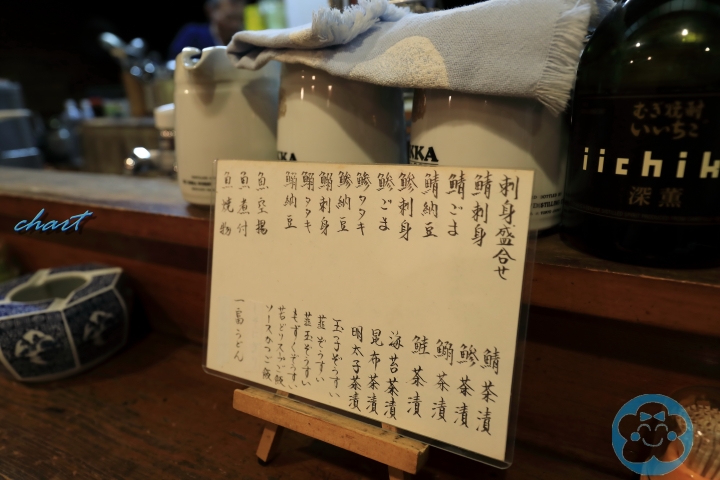 刺身盛合せ
鯖刺身
鯖ごま
鯖納豆
鯵刺身
鯵ごま
鯵タタキ
鯵納豆
鰯刺身
鰯タタキ
鰯納豆
魚空揚
魚煮付
魚焼物
鯖茶漬
鯵茶漬
鰯茶漬
鮭茶漬
海苔茶漬
昆布茶漬
明太子茶漬
玉子ぞうすい
韮ぞうすい
韮玉ぞうすい
もずくぞうすい
若どりスープご飯
ソースカツご飯
一富うどん
KKA
むぎ焼酎
いいちこ
iichik
深薫
chart